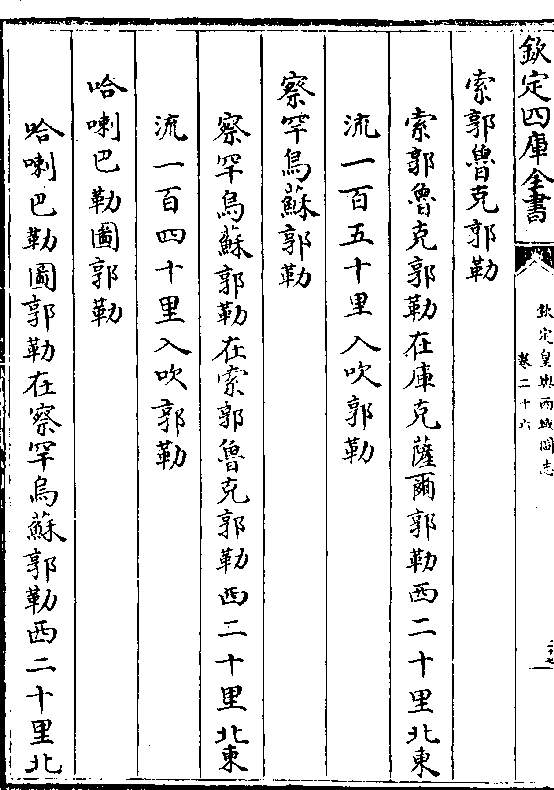 欽定四庫全書
欽定皇輿西域圖志
卷二十六
索郭魯克郭勒
索郭魯克郭勒在庫克薩爾郭勒西二十里北東
流一百五十里入吹郭勒
察罕烏蘇郭勒
察罕烏蘇郭勒在索郭魯克郭勒西二十里北東
流一百四十里入吹郭勒
哈喇巴勒圖郭勒
哈喇巴勒圖郭勒在察罕烏蘇郭勒西二十里北